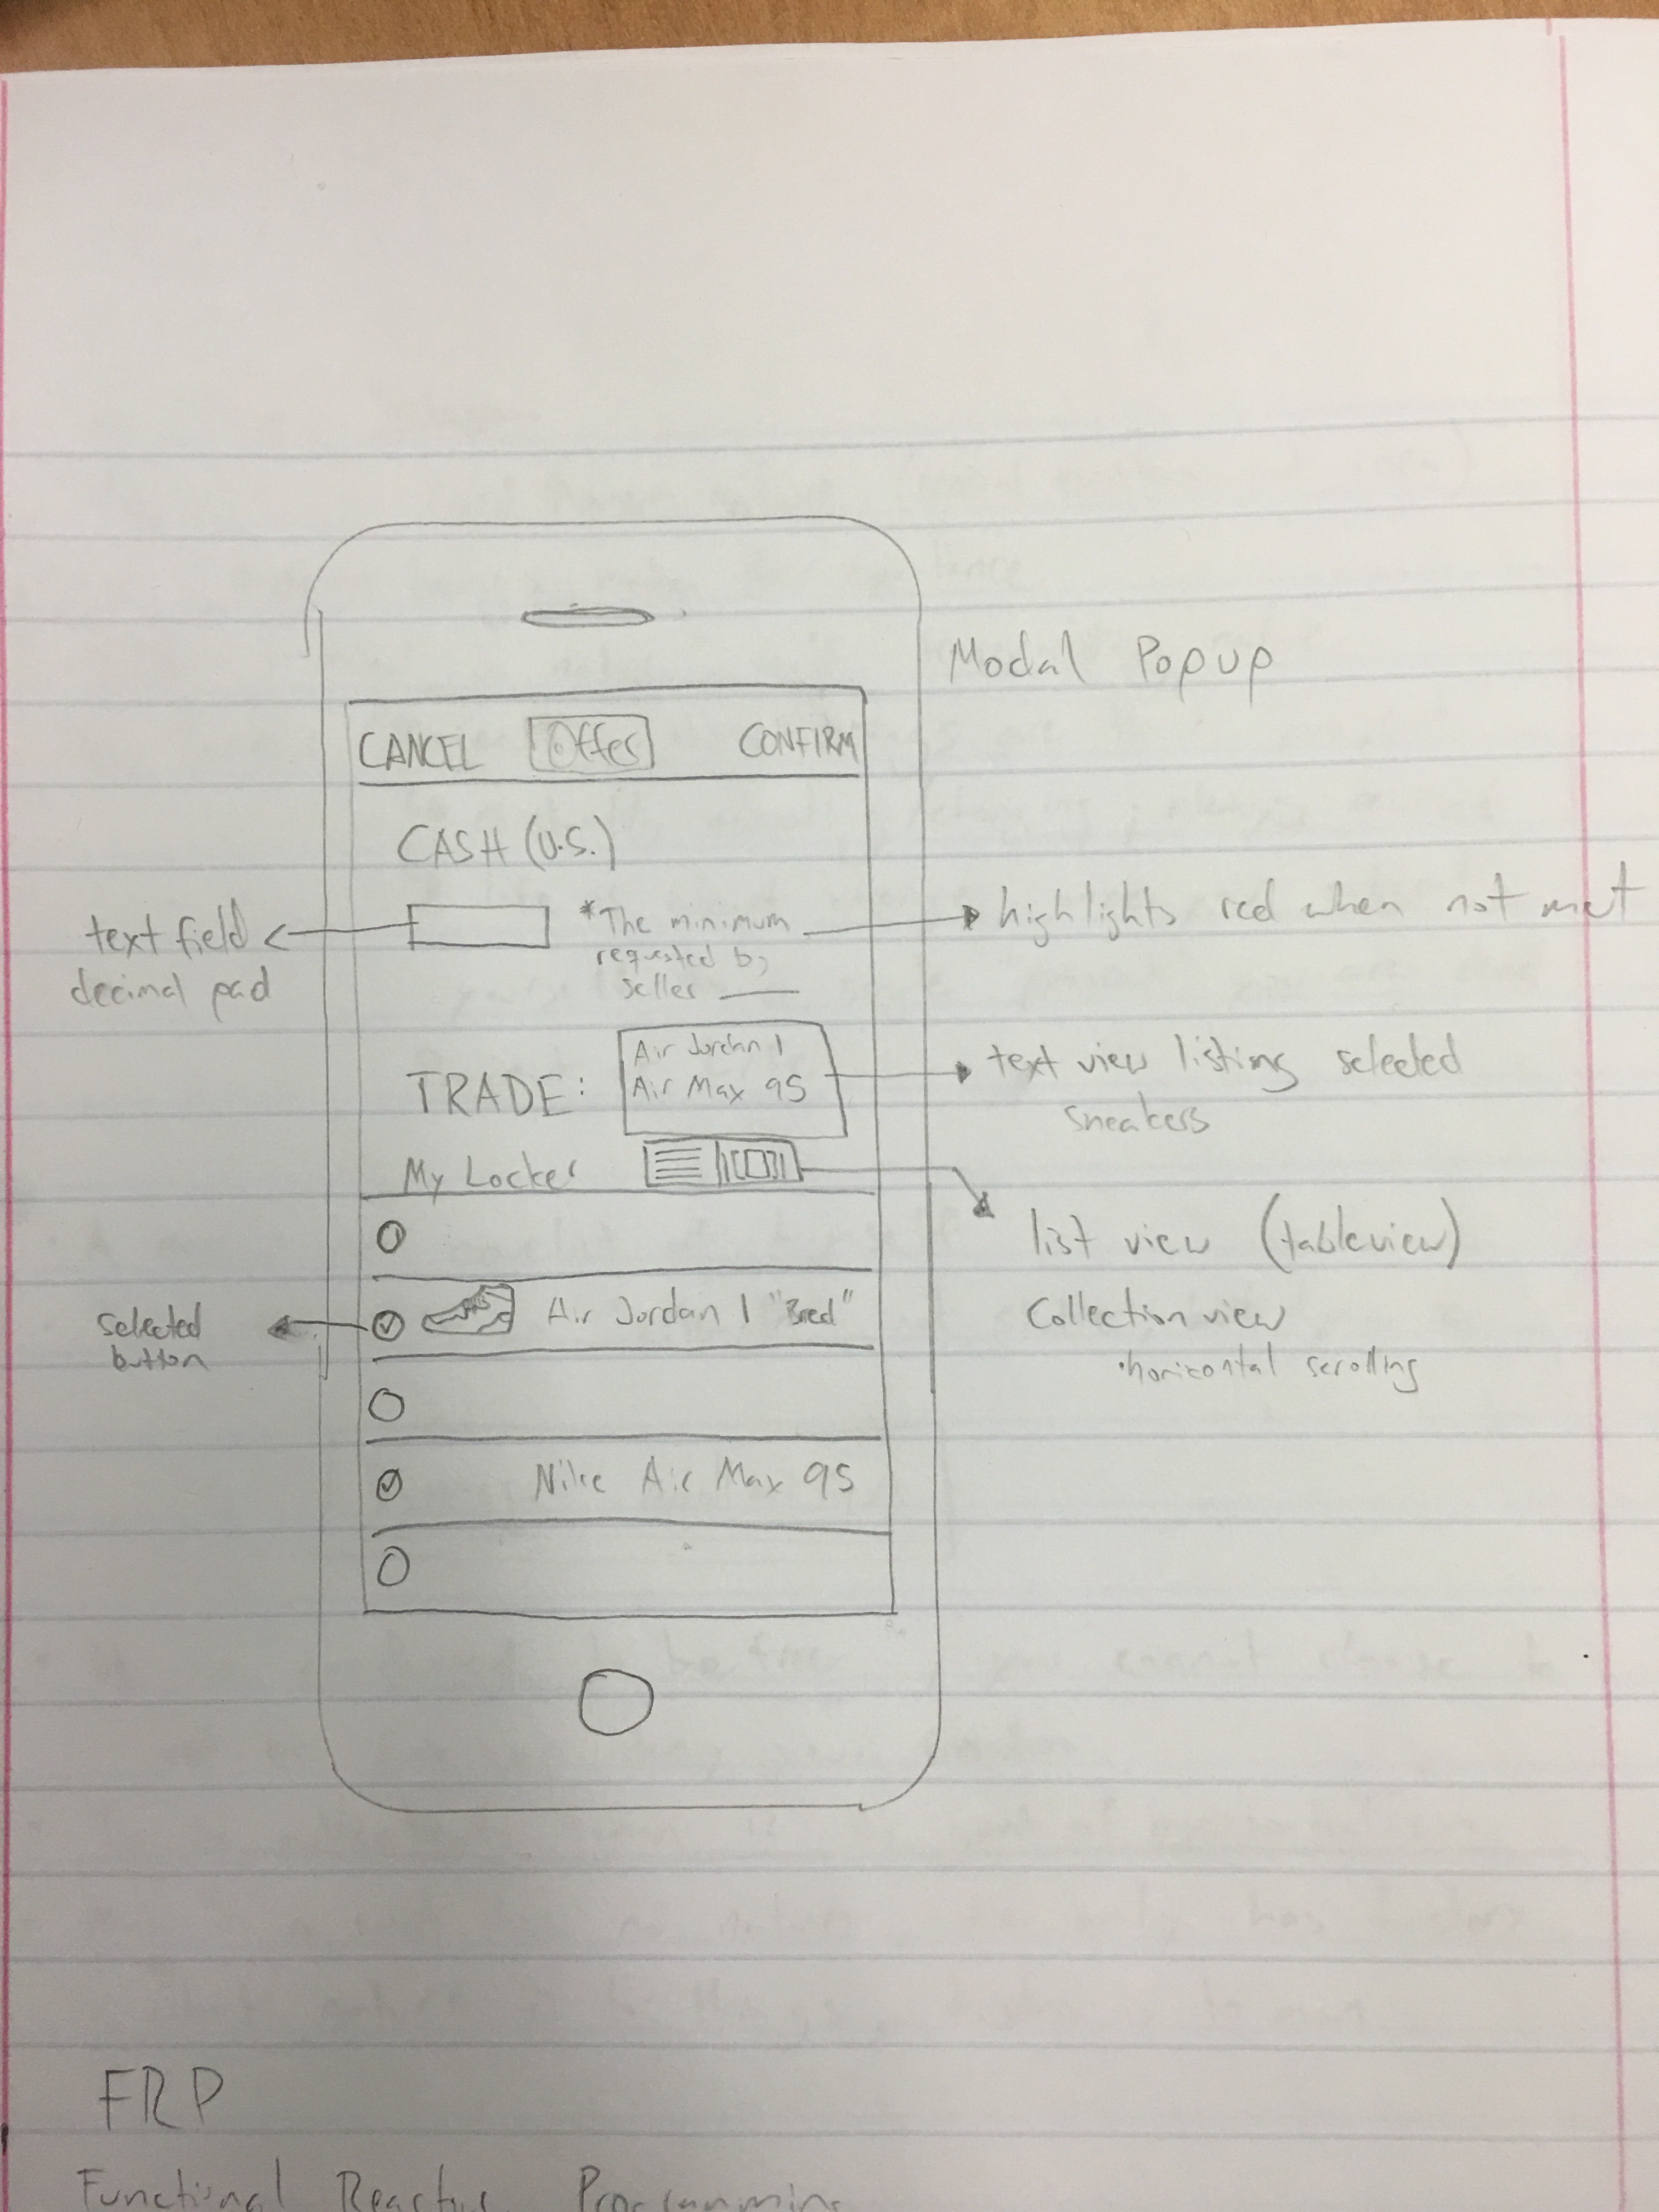 Modal Popup
CANCEL Offer CONFIRM
CASH (U.S.)
text field
decimal pad
*The minimum
requested by
seller
highlights red when not met
TRADE:
Air Jordan 1
Air Max 95
text view listing selected
sneakers
My Locker
list view (tableview)
Collection view
·horizontal scrolling
selected
button
Air Jordan 1 "Bred"
Nike Air Max 95
FRP
Functional Reactive Programming